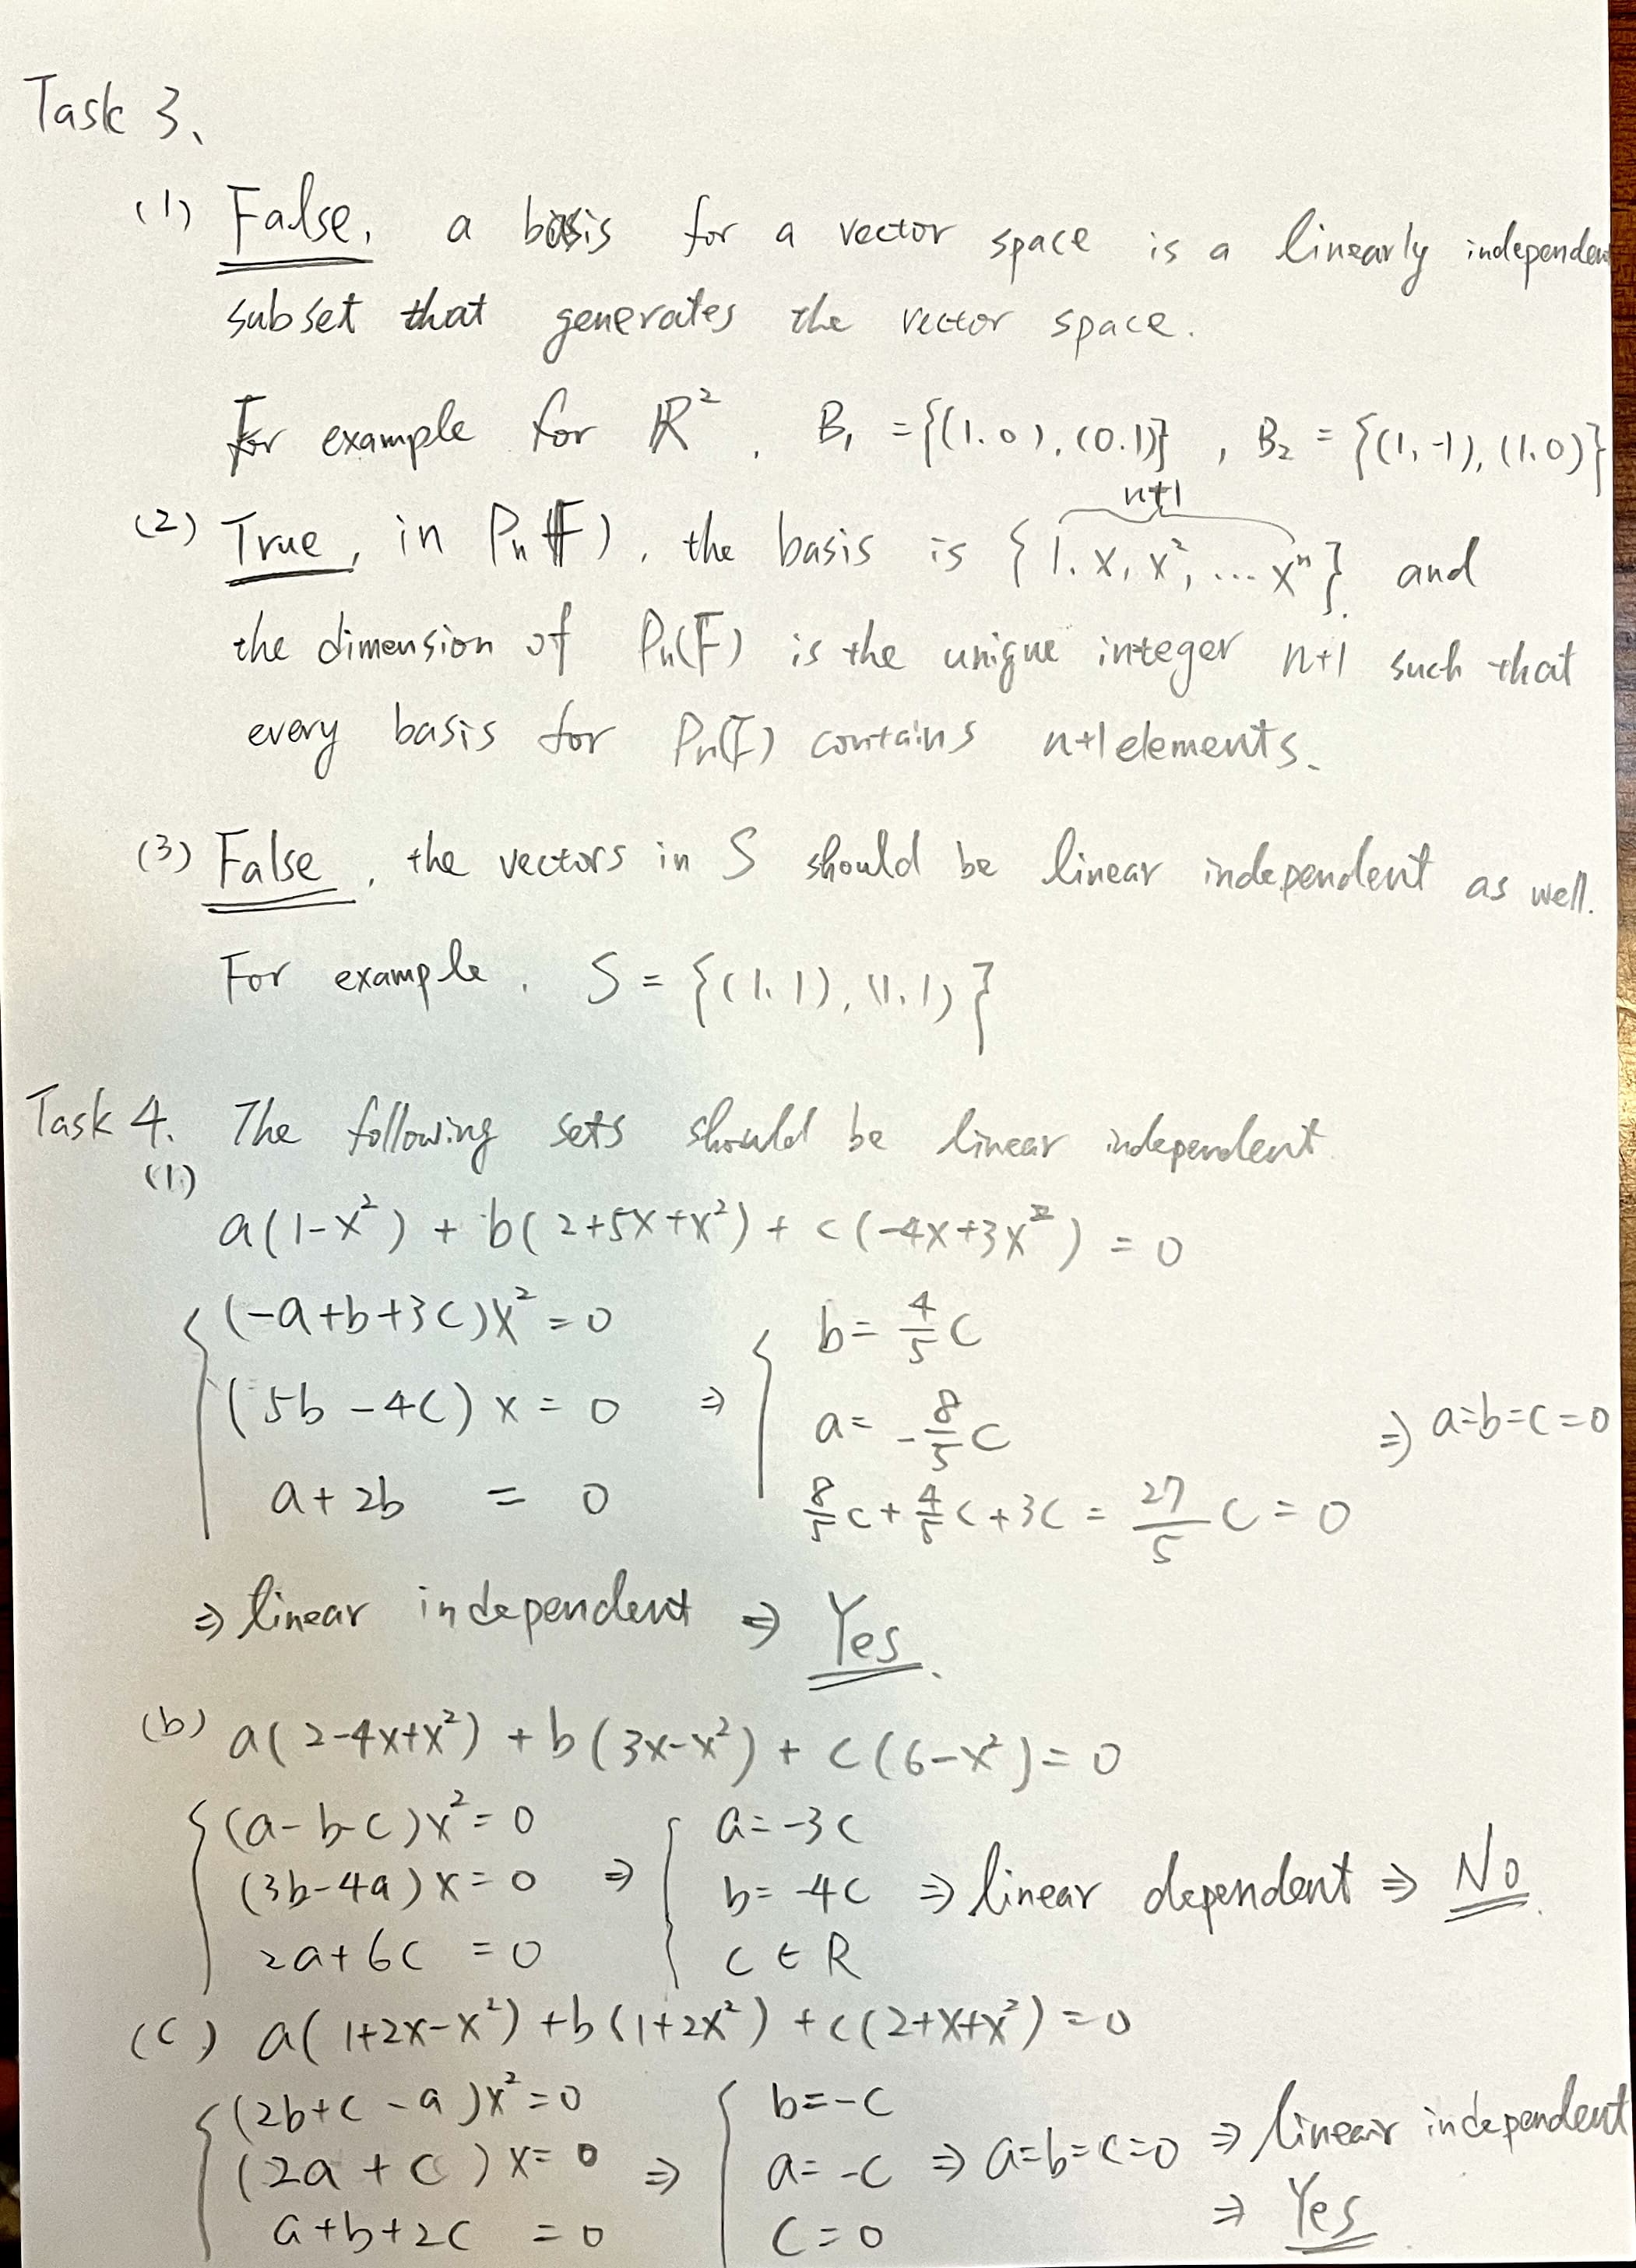 Task 3、
(1) False, a basis for a vector space is a linearly independen
subset that generates the vector space.
For example for ℝ², B₁ = {(1.0),(0.1)}, B₂ = {(1,-1),(1.0)}
n+1
(2) True, in Pn(F), the basis is {1.x,x²,...xⁿ} and
the dimension of Pn(F) is the unique integer n+1 such that
every basis for Pn(F) contains n+1 elements.
(3) False, the vectors in S should be linear independent as well.
For example, S = {(1.1),(1.1)}
Task 4. The following sets should be linear independent
(1)
a(1-x²) + b(2+5x+x²) + c(-4x+3x²) = 0
(-a+b+3c)x²=0 b=4/5c
(5b-4c)x=0 ⇒ a=-8/5c ⇒ a=b=c=0
a+2b = 0 8/5c+4/5c+3c=27/5c=0
⇒ linear independent ⇒ Yes.
(b) a(2-4x+x²) + b(3x-x²) + c(6-x²)=0
(a-b-c)x²=0 a=-3c
(3b-4a)x=0 ⇒ b=-4c ⇒ linear dependent ⇒ No.
2a+6c =0 c∈R
(c) a(1+2x-x²)+b(1+2x²)+c(2+x+x²)=0
(2b+c-a)x²=0 b=-c
(2a+c)x=0 ⇒ a=-c ⇒ a=b=c=0 ⇒ linear independent
a+b+2c =0 c=0 ⇒ Yes